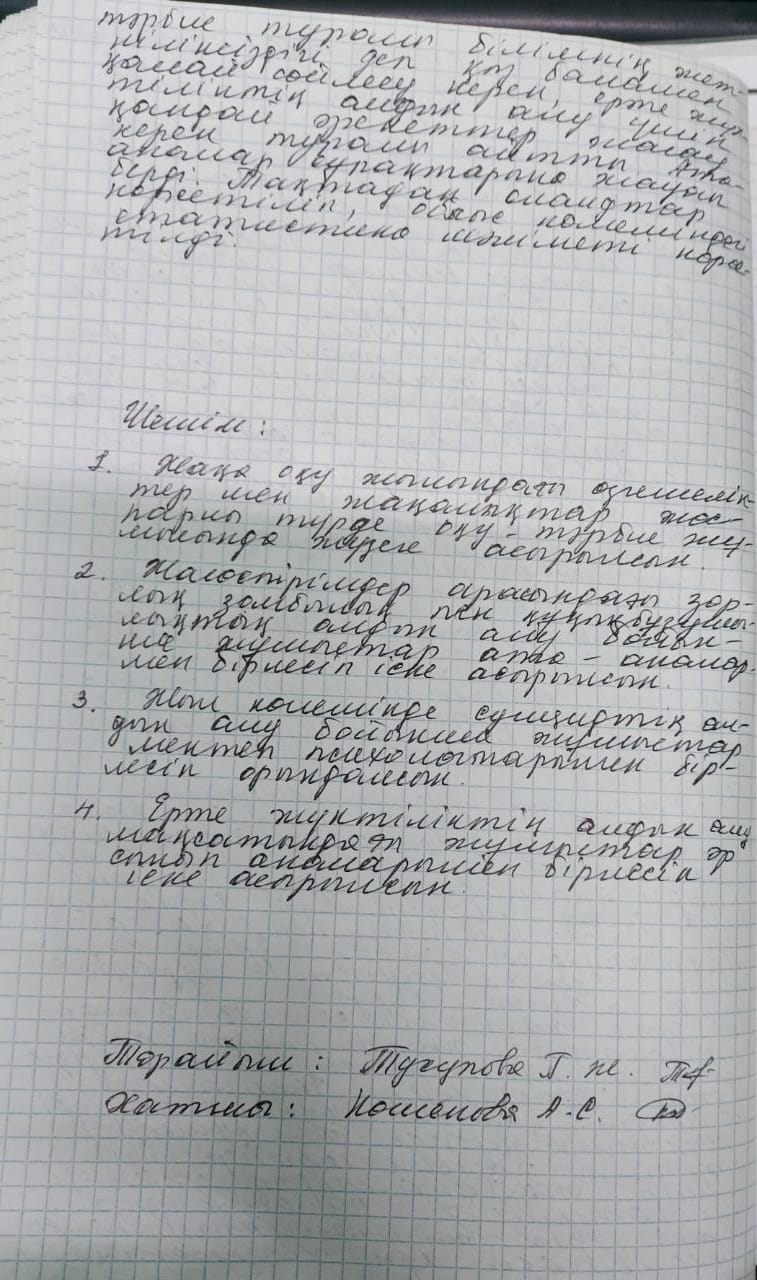 тәрбие туралы білімнің жет-
кіліксіздігі деп қыз баламен
қалай сөйлесу керек, ерте жүк-
тіліктің алдын алу үшін
қандай әрекеттер жасау
керек туралы айтты. Ата-
аналар сұрақтарына жауап
берді. Тақтадан слайдтар
көрсетіліп, облыс көлеміндегі
статистика мәліметі көрсе-
тілді.
Шешім:
1. Жаңа оқу жылындағы өзгешелік-
тер мен жаңалықтар жос-
парлы түрде оқу-тәрбие жұ-
мысында жүзеге асырылсын.
2. Жасөспірімдер арасындағы зор-
лық зомбылық пен құқықбұзушы-
лықтың алдын алу бойын-
ша жұмыстар ата-аналар-
мен бірлесіп іске асырылсын.
3. Жыл көлемінде суицидтің ал-
дын алу бойынша жұмыстар
мектеп психологтарымен бір-
лесіп орындалсын.
4. Ерте жүктіліктің алдын алу
мақсатындағы жұмыстар әр
сынып аналарымен бірлесіп
іске асырылсын.
Төрайым: Тусупова Г. Ж.
Хатшы: Кошенова А.С.